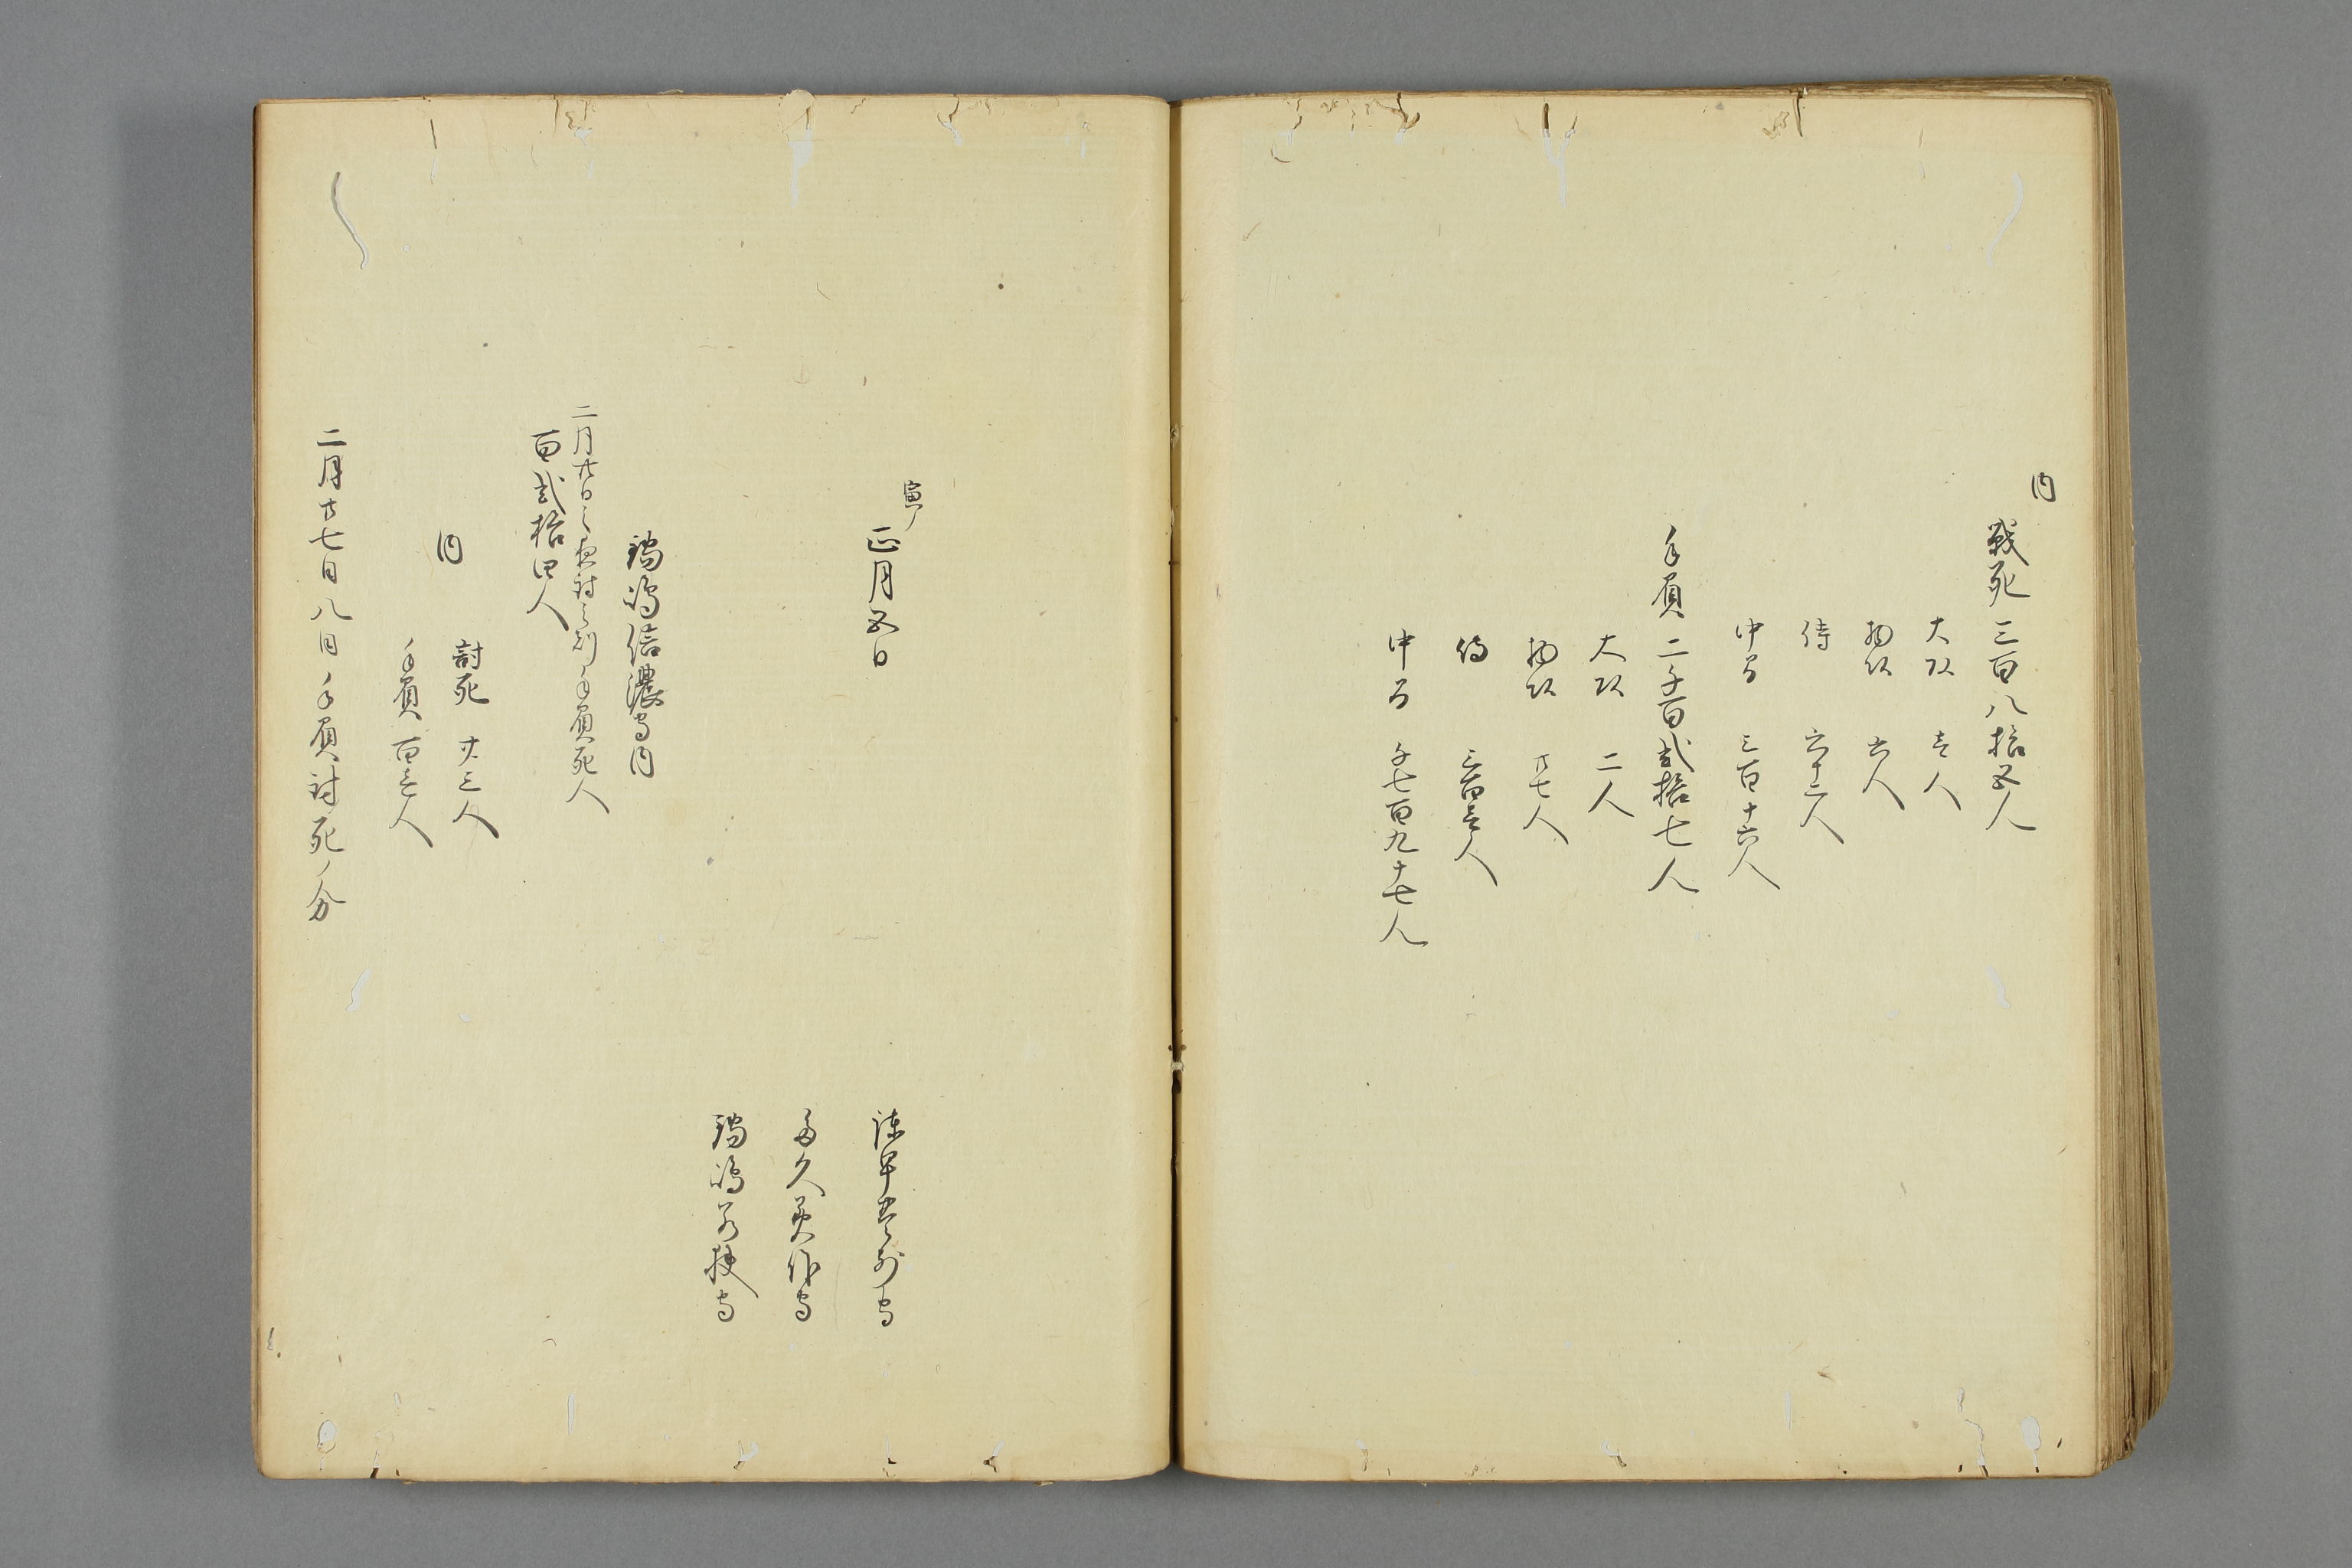 内
戦死 三百八拾五人
大頭 壱人
物頭 六人
侍 六十二人
中間 三百十六人
手負 二千百弐拾七人
大頭 二人
物頭 廿七人
侍 三百壱人
中間 千七百九十七人
寅ノ
正月五日
諫早豊前守
多久美作守
鍋嶋若狭守
鍋嶋信濃守内
二月廿日之夜討之刻手負死人
百弐拾四人
内
討死 廿三人
手負 百壱人
二月廿七日八日手負討死ノ分